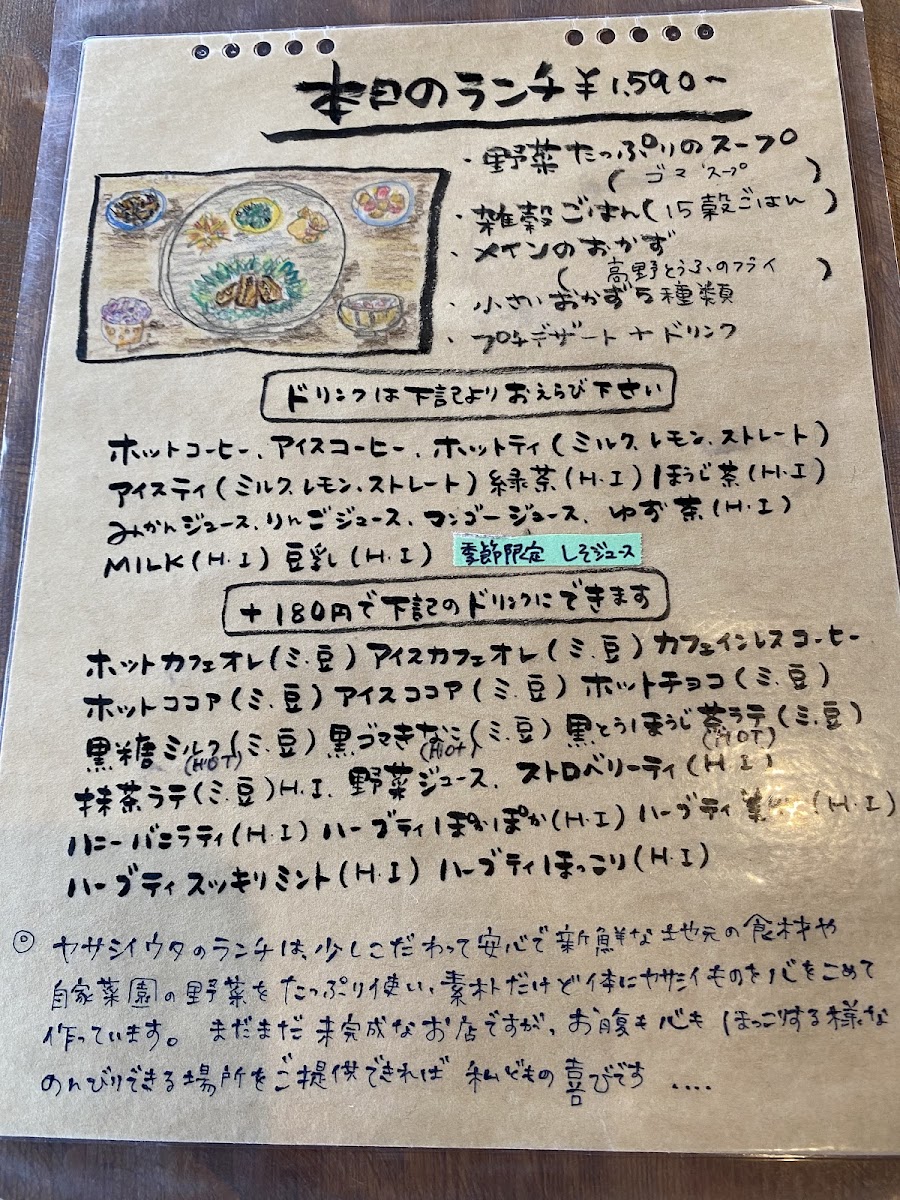 本日のランチ ¥1,590~
・野菜たっぷりのスープ
(ゴマスープ)
・雑穀ごはん(15穀ごはん)
・メインのおかず
(高野とうふのフライ)
・小さいおかず5種類
・プチデザート+ドリンク
ドリンクは下記よりおえらび下さい
ホットコーヒー、アイスコーヒー、ホットティ(ミルク、レモン、ストレート)
アイスティ(ミルク、レモン、ストレート)緑茶(H・I)ほうじ茶(H・I)
みかんジュース、りんごジュース、マンゴージュース、ゆず茶(H・I)
MILK(H・I)豆乳(H・I) 季節限定 しそジュース
+180円で下記のドリンクにできます
ホットカフェオレ(ミ・豆)アイスカフェオレ(ミ・豆)カフェインレスコーヒー
ホットココア(ミ・豆)アイスココア(ミ・豆)ホットチョコ(ミ・豆)
黒糖ミルク(ミ・豆)黒ゴマきなこ(ミ・豆)黒とうほうじ茶ラテ(ミ・豆)
(HOT) (HOT) (HOT)
抹茶ラテ(ミ・豆)H・I、野菜ジュース、ストロベリーティ(H・I)
ハニーバニラティ(H・I)ハーブティぽかぽか(H・I)ハーブティ(H・I)
ハーブティスッキリミント(H・I)ハーブティほっこり(H・I)
◎ヤサシイウタのランチは、少しこだわって安心で新鮮な地元の食材や
自家菜園の野菜をたっぷり使い、素朴だけど体にヤサシイものを心をこめて
作っています。まだまだ未完成なお店ですが、お腹も心もほっこりする様な
のんびりできる場所をご提供できれば私どもの喜びです....